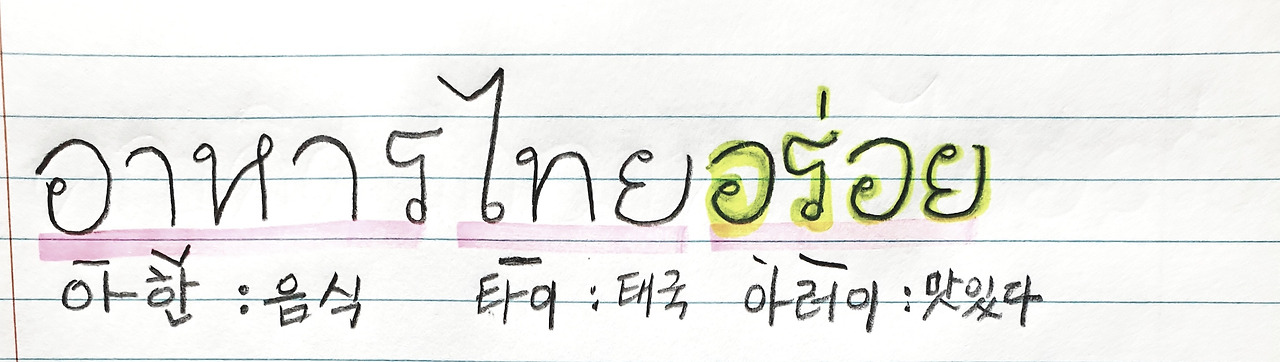 อาหารไทยอร่อย
아한 : 음식 타이 : 태국 아러이 : 맛있다